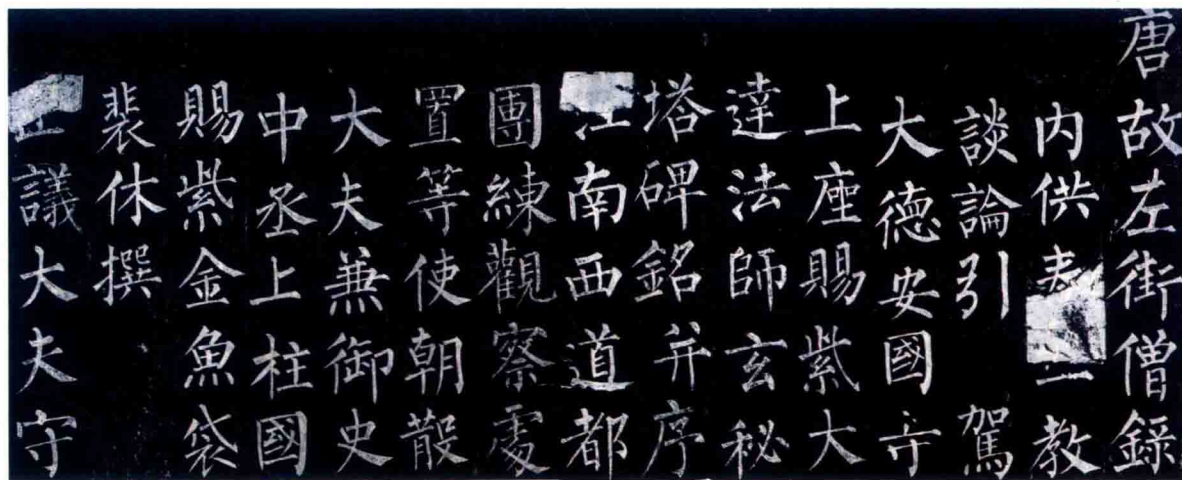 唐故左街僧錄
内供奉三教
談論引 駕
大德安國寺
上座賜紫大
達法師玄秘
塔碑銘并序
江南西道都
團練觀察處
置等使朝散
大夫兼御史
中丞上柱國
賜紫金魚袋
裴休撰
正議大夫守